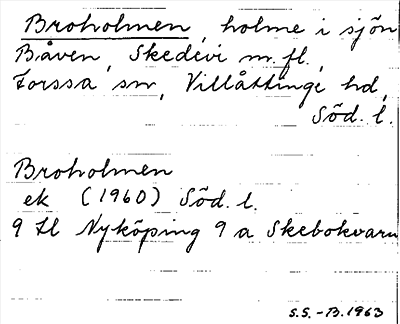 Broholmen, holme i sjön
Båven, Skedevi m. fl.,
Forssa sn, Villåttinge hd,
Söd. l.
Broholmen
ek (1960) Söd. l.
9 H Nyköping 9 a Skebokvarn
S.S. -B. 1963